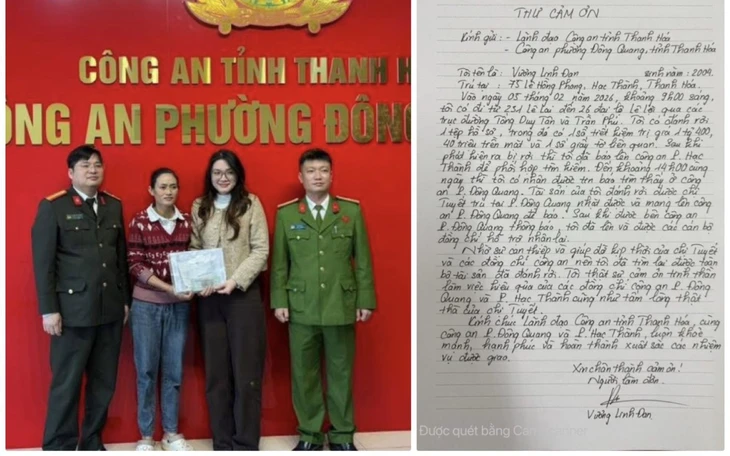 CÔNG AN TỈNH THANH H
ÔNG AN PHƯỜNG ĐÔN
THƯ CẢM ƠN
Kính gửi: - Lãnh đạo Công an tỉnh Thanh Hóa
- Công an phường Đông Quang, tỉnh Thanh Hóa
Tôi tên là: Vương Linh Đan sinh năm: 2009.
Trú tại: 75 Lê Hồng Phong, Hạc Thành, Thanh Hóa.
Vào ngày 05 tháng 02 năm 2026, khoảng 9h00 sáng,
tôi có đi từ 231 Lê Lai đến 26 đại lộ Lê Lợi qua các
trục đường Tống Duy Tân và Trần Phú. Tôi có đánh rơi
1 tệp hồ sơ, trong đó có 1 số tiền trị giá
40 triệu tiền mặt và 1 số giấy tờ liên quan. Sau khi
phát hiện ra bị rơi thì tôi đã báo lên công an P. Hạc
Thành để phối hợp tìm kiếm. Đến khoảng 14h00 cùng
ngày thì tôi có nhận được tin báo tìm thấy ở công
an P. Đông Quang. Tài sản của tôi đánh rơi được chị
Tuyết trú tại P. Đông Quang nhặt được và mang lên công
an P. Đông Quang để báo. Sau khi được bên công an
P. Đông Quang thông báo, tôi đã lên và được các cán bộ
đồng chí hỗ trợ nhận lại.
Nhờ sự can thiệp và giúp đỡ kịp thời của chị Tuyết
và các đồng chí công an nên tôi đã tìm lại được toàn
bộ tài sản đã đánh rơi. Tôi thật sự cảm ơn tinh thần
làm việc hiệu quả của các đồng chí công an P. Đông
Quang và P. Hạc Thành cũng như tấm lòng thật
thà của chị Tuyết.
Kính chúc lãnh đạo Công an tỉnh Thanh Hóa, cùng
công an P. Đông Quang và P. Hạc Thành, luôn khỏe
mạnh, hạnh phúc và hoàn thành xuất sắc các nhiệm
vụ được giao.
Xin chân thành cảm ơn!
Người làm đơn.
Vương Linh Đan
Được quét bằng Cam nner